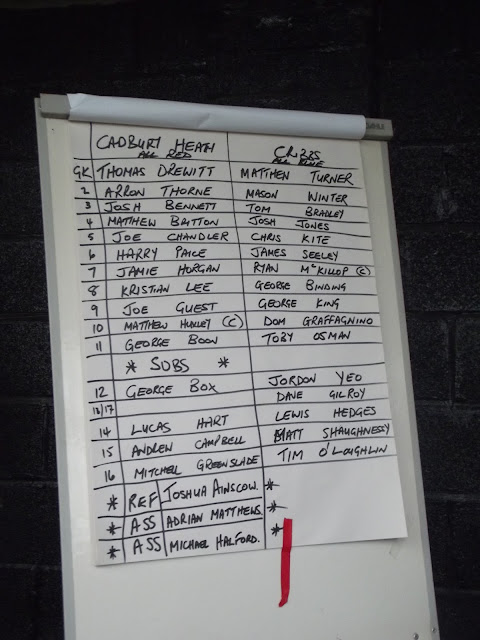 CADBURY HEATH CRIBBS
ALL RED ALL BLUE
GK THOMAS DREWITT MATTHEW TURNER
2 ARRON THORNE MASON WINTER
3 JOSH BENNETT TOM BRADLEY
4 MATTHEW BRITTON JOSH JONES
5 JOE CHANDLER CHRIS KITE
6 HARRY PAICE JAMES SEELEY
7 JAMIE HORGAN RYAN McKILLOP (C)
8 KRISTIAN LEE GEORGE BINDING
9 JOE GUEST GEORGE KING
10 MATTHEW HUXLEY (C) DOM GRAFFAGNINO
11 GEORGE BOON TOBY OSMAN
* SUBS *
12 GEORGE BOX JORDON YEO
13/17 DANE GILROY
14 LUCAS HART LEWIS HEDGES
15 ANDREW CAMPBELL MATT SHAUGHNESSY
16 MITCHELL GREENSLADE TIM O'LOUGHLIN
* REF JOSHUA AINSCOW. *
* ASS ADRIAN MATTHEWS. *
* ASS MICHAEL HALFORD. *